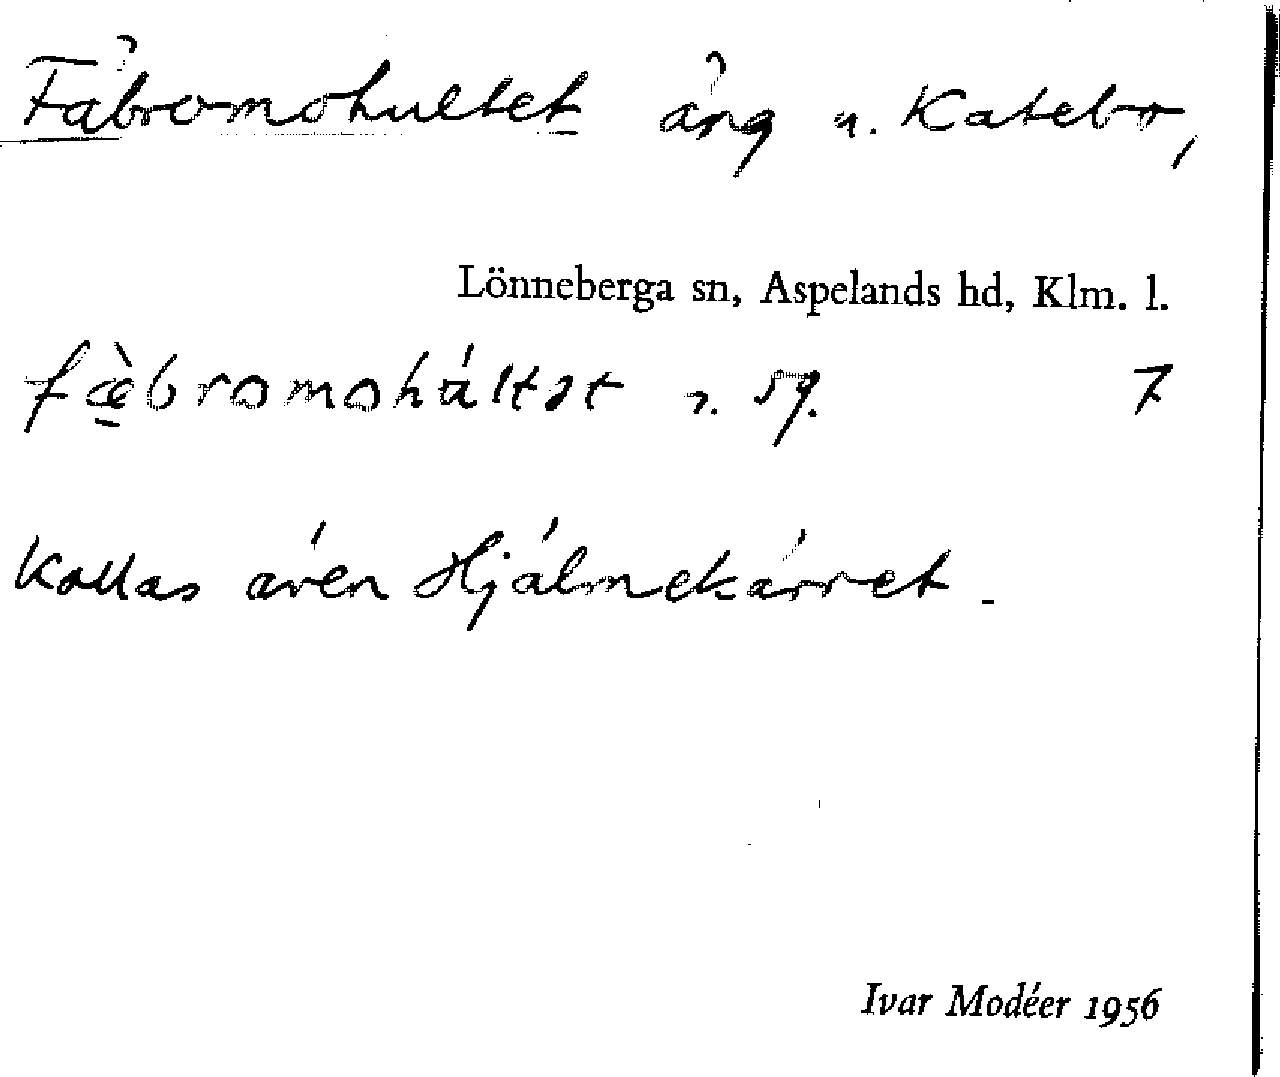 Fäbromohultet äng u. Katebo,
Lönneberga sn, Aspelands hd, Klm. l.
fæ̀bromohúltət n. sg. 7
Kallas även Hjälmekärret.
Ivar Modéer 1956